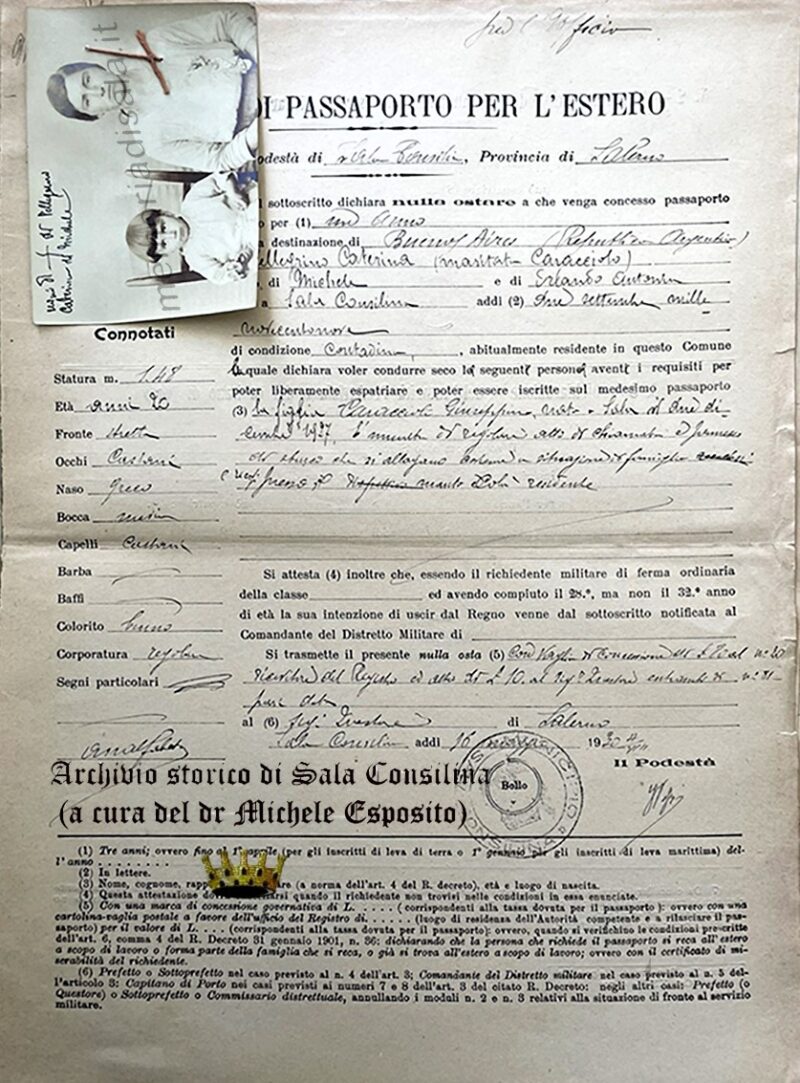 per l'Ufficio
DI PASSAPORTO PER L'ESTERO
odestà di Sala Consilina, Provincia di Salerno
l sottoscritto dichiara nulla ostare a che venga concesso passaporto
o per (1) un anno
a destinazione di Buenos Aires (Republica Argentina)
ellegrino Caterina (maritata Caracciolo)
di Michele e di Erlando Antonia
a Sala Consilina addì (2) due settembre mille
novecentonove
di condizione Contadina, abitualmente residente in questo Comune
la quale dichiara voler condurre seco la seguente persona avente i requisiti per
poter liberamente espatriare e poter essere iscritte sul medesimo passaporto
(3) la figlia Caracciolo Giuseppina, nata a Sala il due di-
cembre 1927. È munita di regolare atto di chiamata
che si allegano situazione di famiglia
presso il marito colà residente
Si attesta (4) inoltre che, essendo il richiedente militare di ferma ordinaria
della classe ed avendo compiuto il 28.°, ma non il 32.° anno
di età la sua intenzione di uscir dal Regno venne dal sottoscritto notificata al
Comandante del Distretto Militare di
Si trasmette il presente nulla osta (5) Con Vaglia di Concessione di
Ricevitore del Registro ed altro di £ 10 al
pari data
al (6) Sig. Questore di Salerno
Sala Consilina addì 16 1930
Il Podestà
Bollo
MUNICIPIO
Pellegrino
Caterina di Michele
memoriadisala.it
Connotati
Statura m. 1.48
Età anni 20
Fronte stretta
Occhi Castani
Naso greco
Bocca media
Capelli Castani
Barba
Baffi
Colorito bruno
Corporatura regolare
Segni particolari
analfabeta
Archivio storico di Sala Consilina
(a cura del dr Michele Esposito)
(1) Tre anni; ovvero fino al 1° aprile (per gli inscritti di leva di terra o 1° gennaio per gli inscritti di leva marittima) del-
l'anno . . . . . . . . .
(2) In lettere.
(3) Nome, cognome, rapp are (a norma dell'art. 4 del R. decreto), età e luogo di nascita.
(4) Questa attestazione dovrà annullarsi quando il richiedente non trovisi nelle condizioni in essa enunciate.
(5) Con una marca di concessione governativa di L. . . . . (corrispondenti alla tassa dovuta per il passaporto): ovvero con una
cartolina-vaglia postale a favore dell'ufficio del Registro di. . . . . . (luogo di residenza dell'Autorità competente e a rilasciare il pas-
saporto) per il valore di L. . . . (corrispondenti alla tassa dovuta per il passaporto): ovvero, quando si verifichino le condizioni prescritte
dell'art. 6, comma 4 del R. Decreto 31 gennaio 1901, n. 36: dichiarando che la persona che richiede il passaporto si reca all'estero
a scopo di lavoro o forma parte della famiglia che si reca, o già si trova all'estero a scopo di lavoro; ovvero con il certificato di mi-
serabilità del richiedente.
(6) Prefetto o Sottoprefetto nel caso previsto al n. 4 dell'art. 3; Comandante del Distretto militare nel caso previsto al n. 5 del-
l'articolo 3: Capitano di Porto nei casi previsti ai numeri 7 e 8 dell'art. 3 del citato R. Decreto: negli altri casi: Prefetto (o
Questore) o Sottoprefetto o Commissario distrettuale, annullando i moduli n. 2 e n. 3 relativi alla situazione di fronte al servizio
militare.